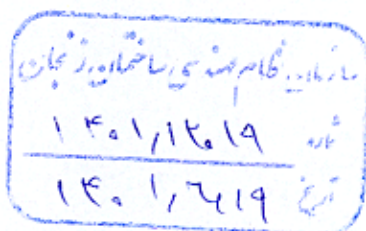 سازمان نظام مهندسی ساختمان زنجان
شماره ۱۴۰۱,۱۲۰۱۹
تاریخ ۱۴۰۱,۶,۱۹